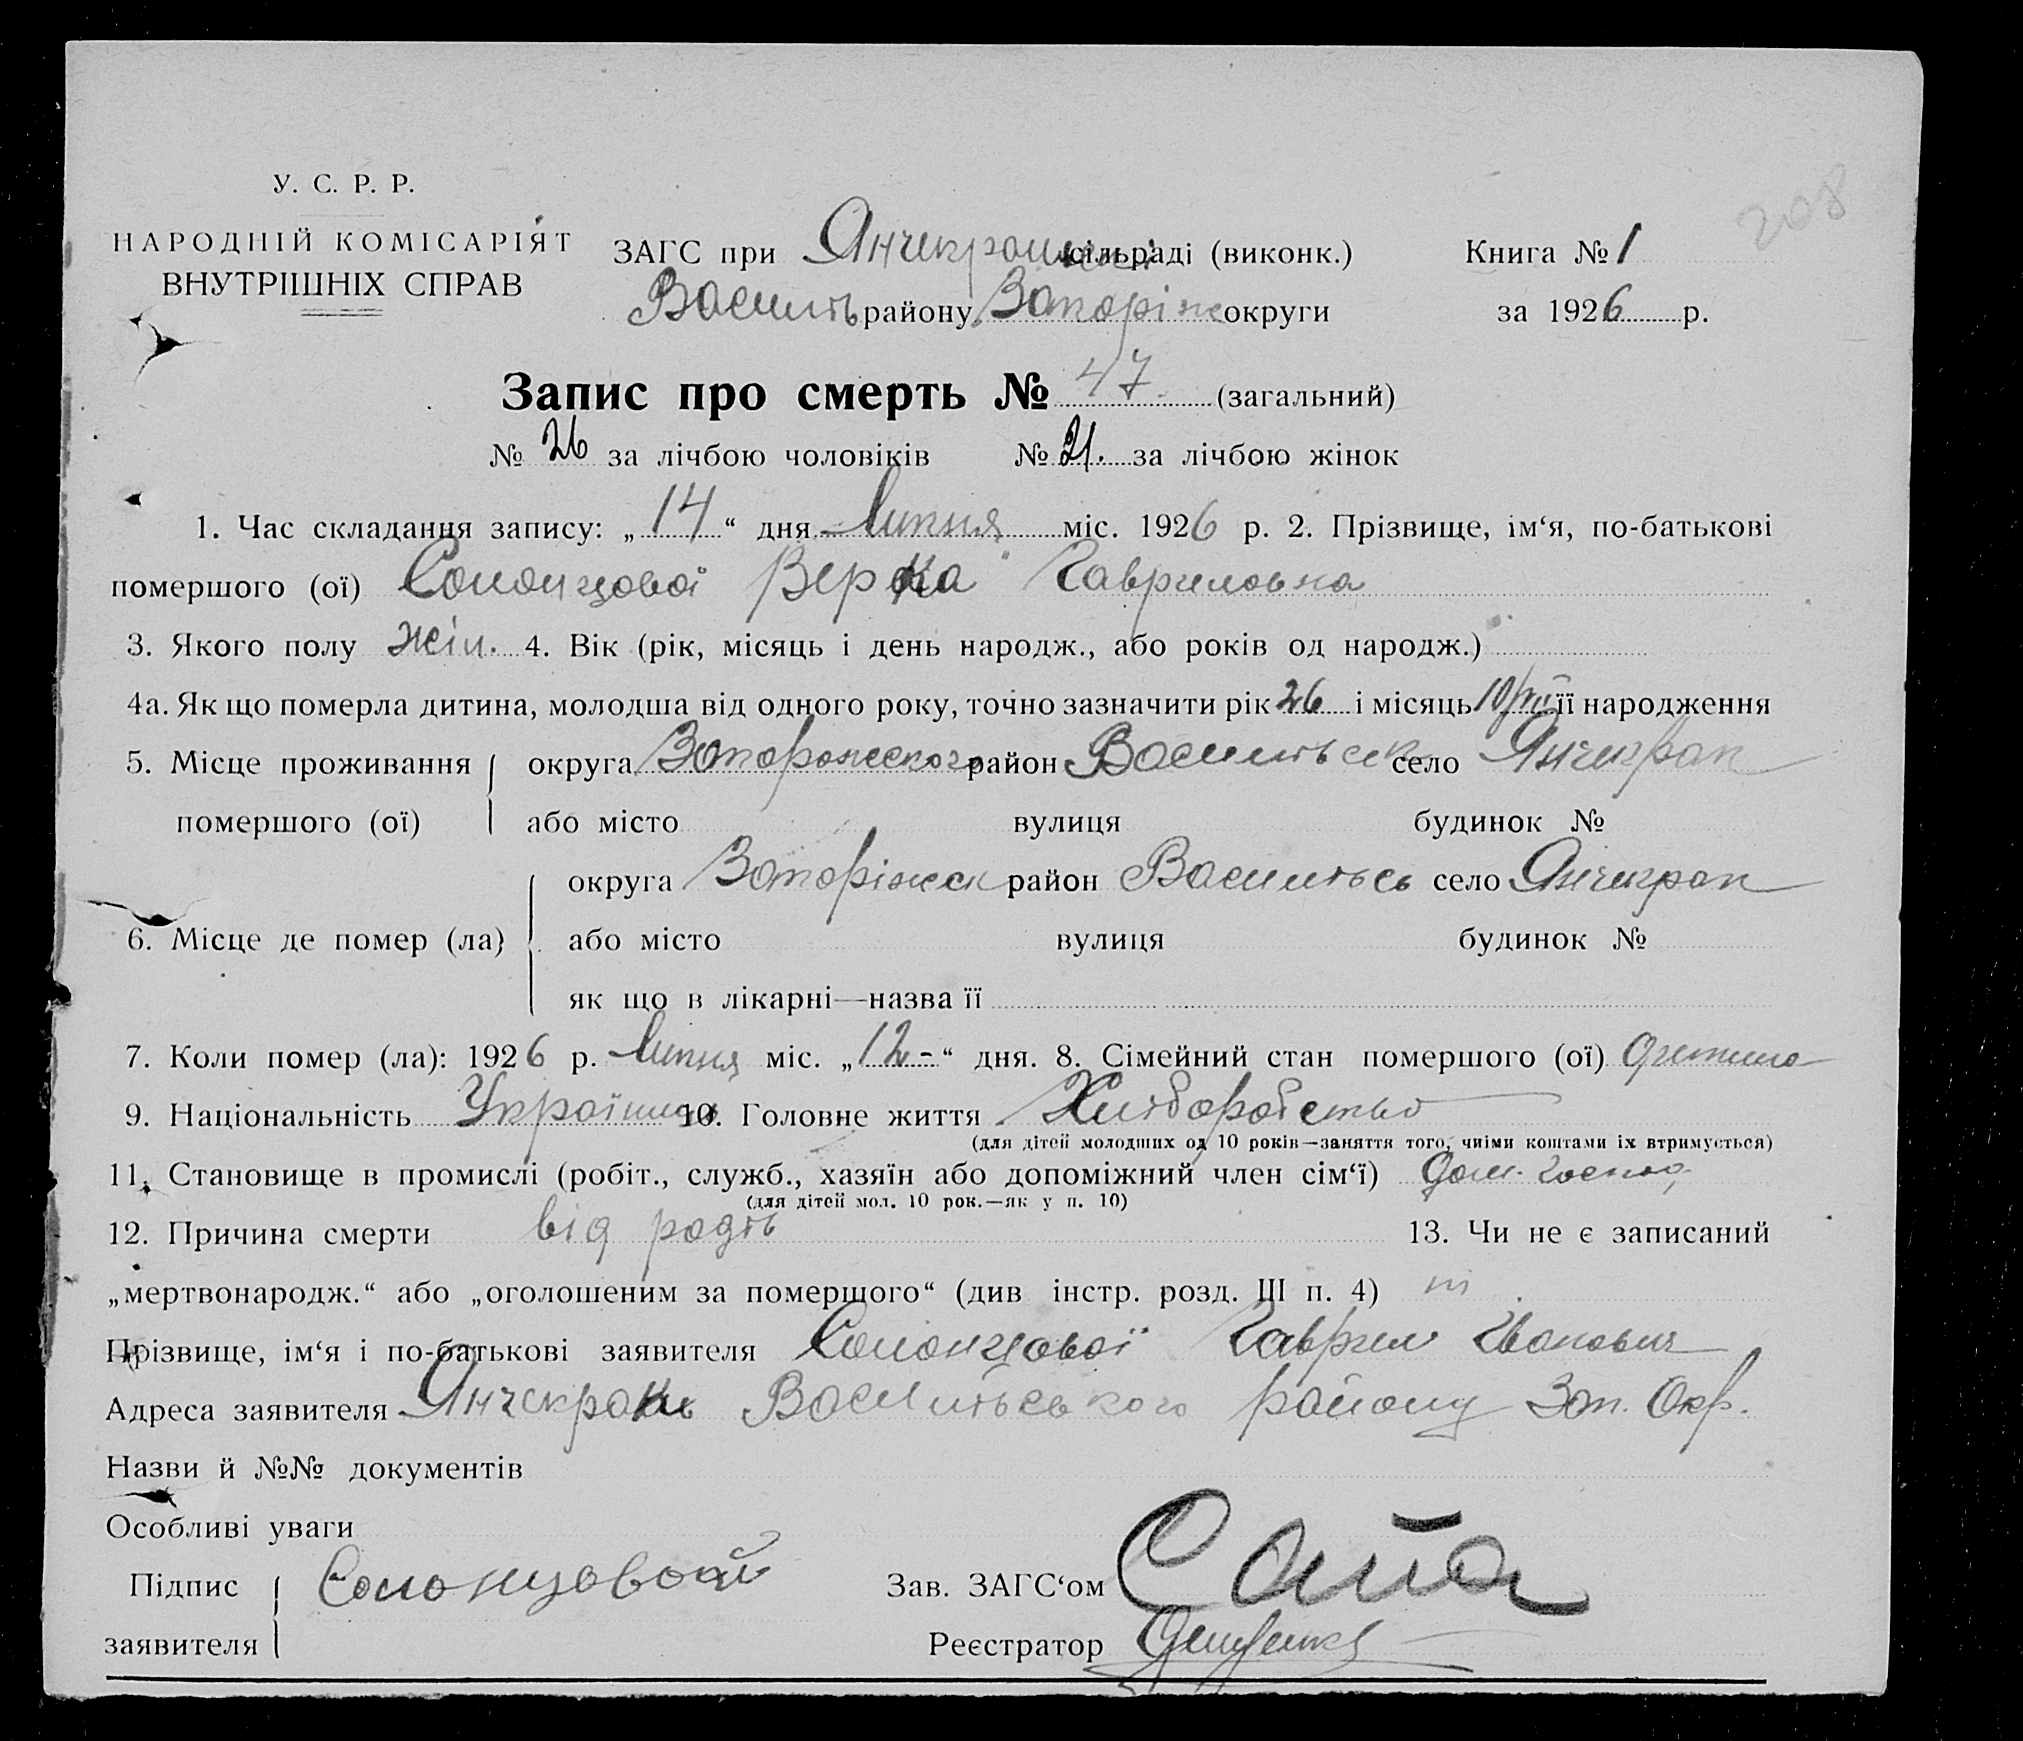 208
У. С. Р. Р.
НАРОДНІЙ КОМІСАРІЯТ
ВНУТРІШНІХ СПРАВ
ЗАГС при Янчекрацькі сільраді (виконк.) Книга № 1
Василь району Запоріж округи за 1926 р.
Запис про смерть № 47 (загальний)
№ 26 за лічбою чоловіків № 21. за лічбою жінок
1. Час складання запису: „14“ дня Липня міс. 1926 р. 2. Прізвище, ім‘я, по-батькові
помершого (ої) Солонцової Верка Гавриловна
3. Якого полу жін. 4. Вік (рік, місяць і день народж., або років од народж.)
4а. Як що померла дитина, молодша від одного року, точно зазначити рік 26 і місяць 10/VII її народження
5. Місце проживання округа Запорожского район Васильевск село Янчекрак
помершого (ої) або місто вулиця будинок №
округа Запоріжск район Васильсь село Янчекрак
6. Місце де помер (ла) або місто вулиця будинок №
як що в лікарні—назва її
7. Коли помер (ла): 1926 р. Липня міс. „12“ дня. 8. Сімейний стан помершого (ої) дитина
9. Національність Українка 10. Головне життя Хліборобство
(для дітей молодших од 10 років—заняття того, чиїми коштами їх втримується)
11. Становище в промислі (робіт., служб., хазяїн або допоміжний член сім‘ї) Дом. Госпо
(для дітей мол. 10 рок.—як у п. 10)
12. Причина смерти від родів 13. Чи не є записаний
„мертвонародж.“ або „оголошеним за помершого“ (див інстр. розд. III п. 4) ні
Прізвище, ім‘я і по-батькові заявителя Солонцової Гаврил Іванович
Адреса заявителя Янчекракъ Васильського району Зап. Окр.
Назви й №№ документів
Особливі уваги
Підпис Солонцовой Зав. ЗАГС‘ом
заявителя Реєстратор